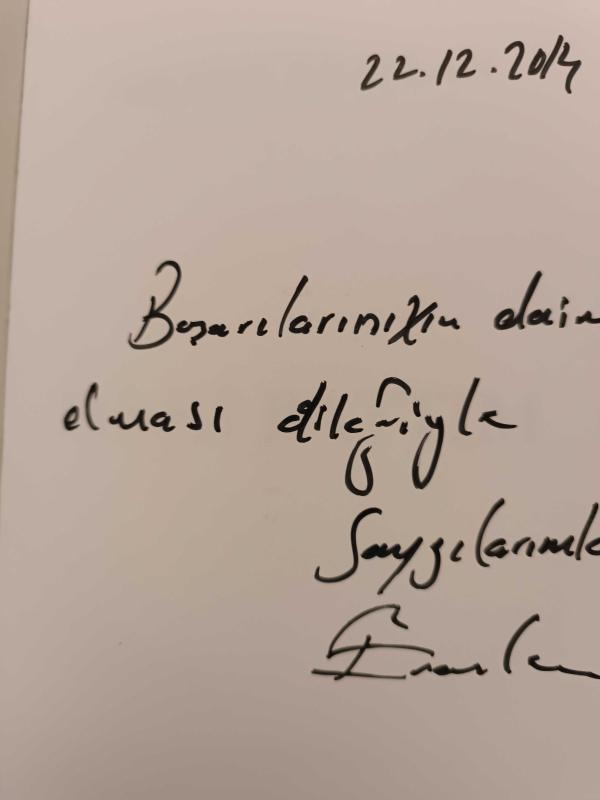 22.12.2014
Başarılarınızın daim
olması dileğiyle
Saygılarımla